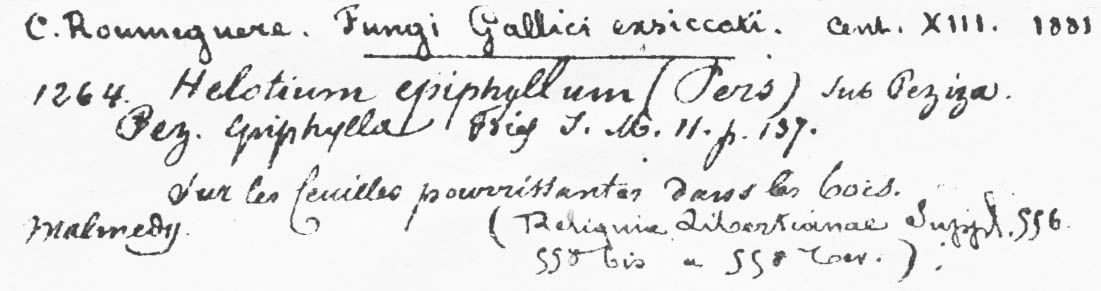 C. Roumeguere. Fungi Gallici exsiccati. Cent. XIII. 1881
1264. Helotium epiphyllum (Pers) sub Peziza.
Pez. Epiphylla Fries S. M. II. p. 137.
Sur les feuilles pourrissantes dans les bois.
Malmedy. (Reliquiae Libertianae Suppl. 556.
558 bis a 558 ter.).